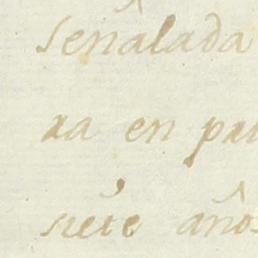 señalada
ra en pa
siete años